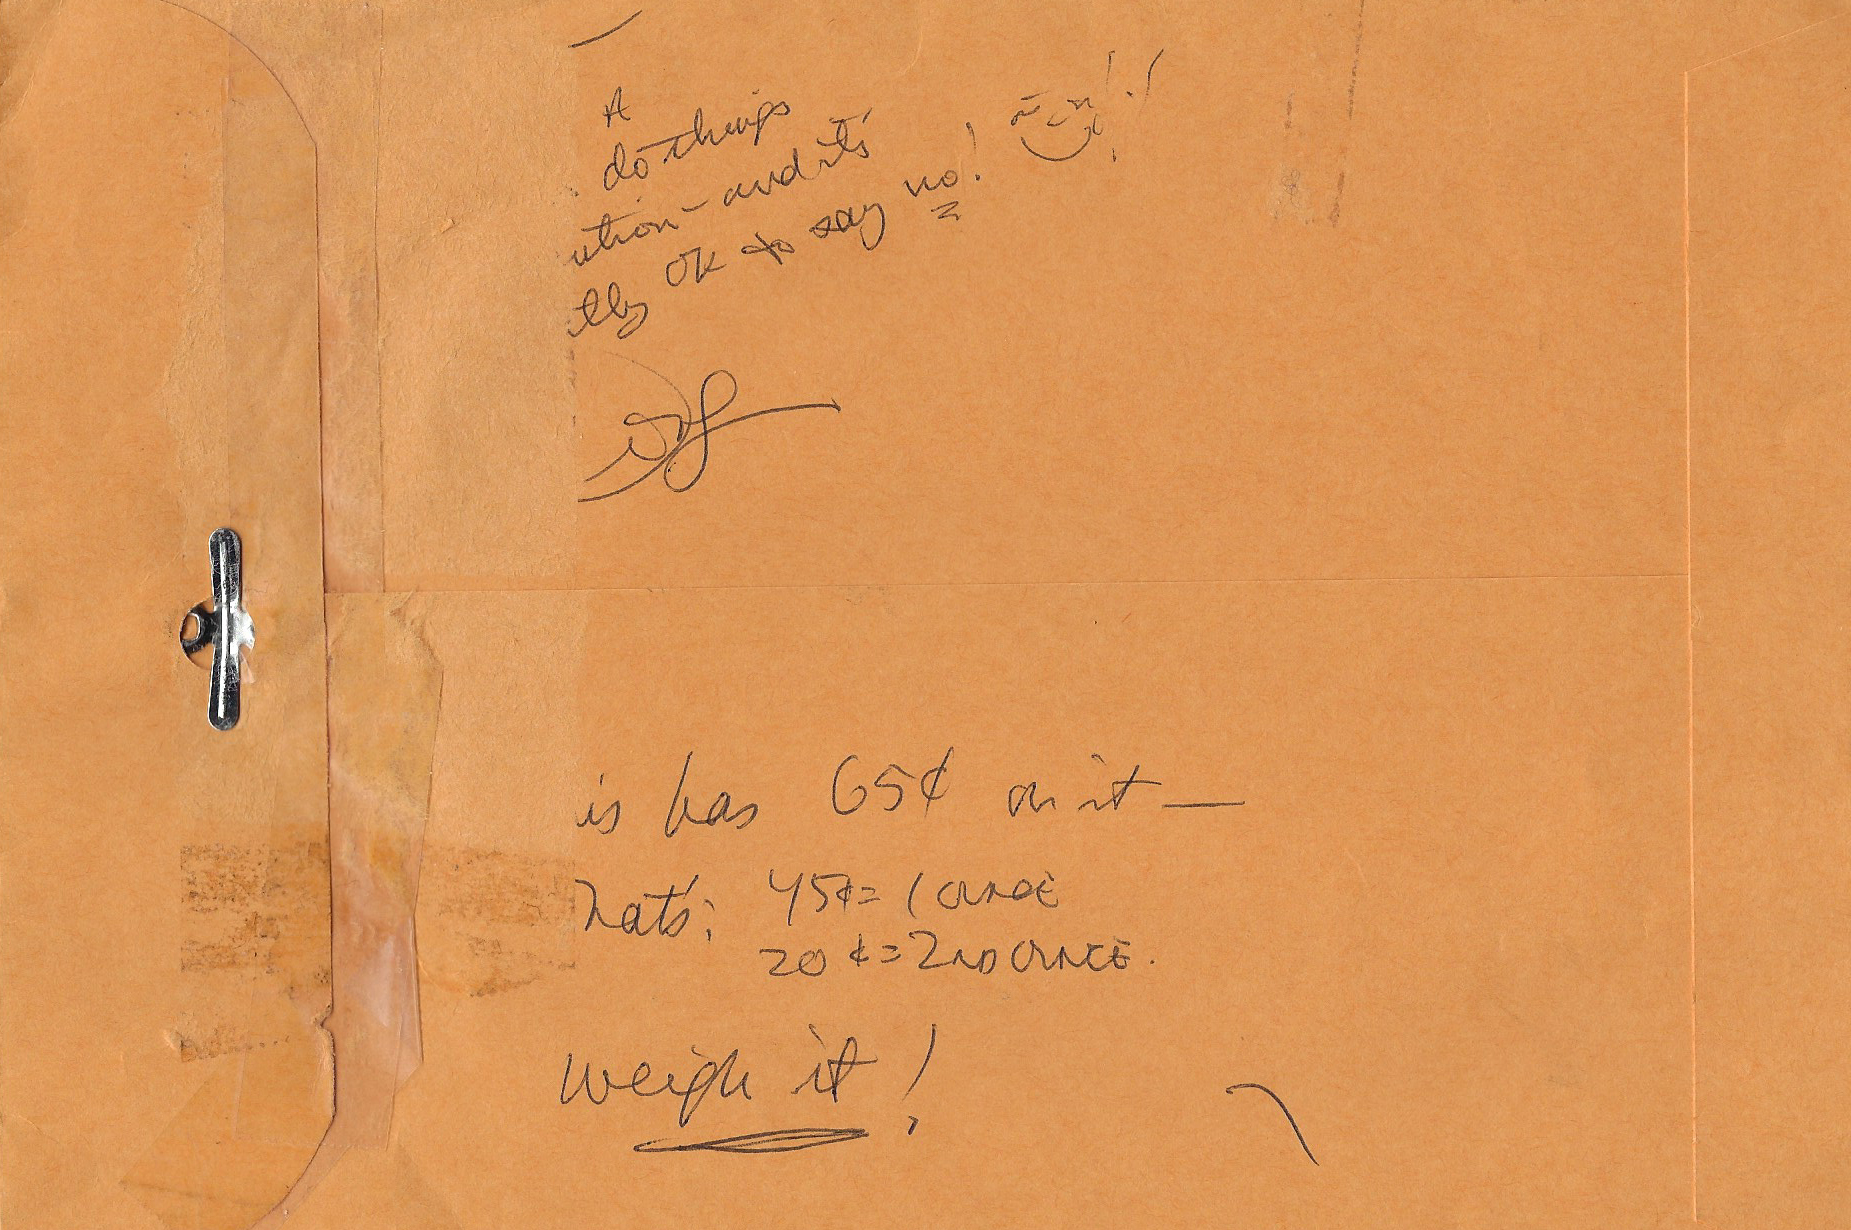 A
do things
ution - and it's
tly OK to say no!
is has 65¢ on it —
hat's: 45¢ = 1 OUNCE
20¢ = 2ND OUNCE.
weigh it!